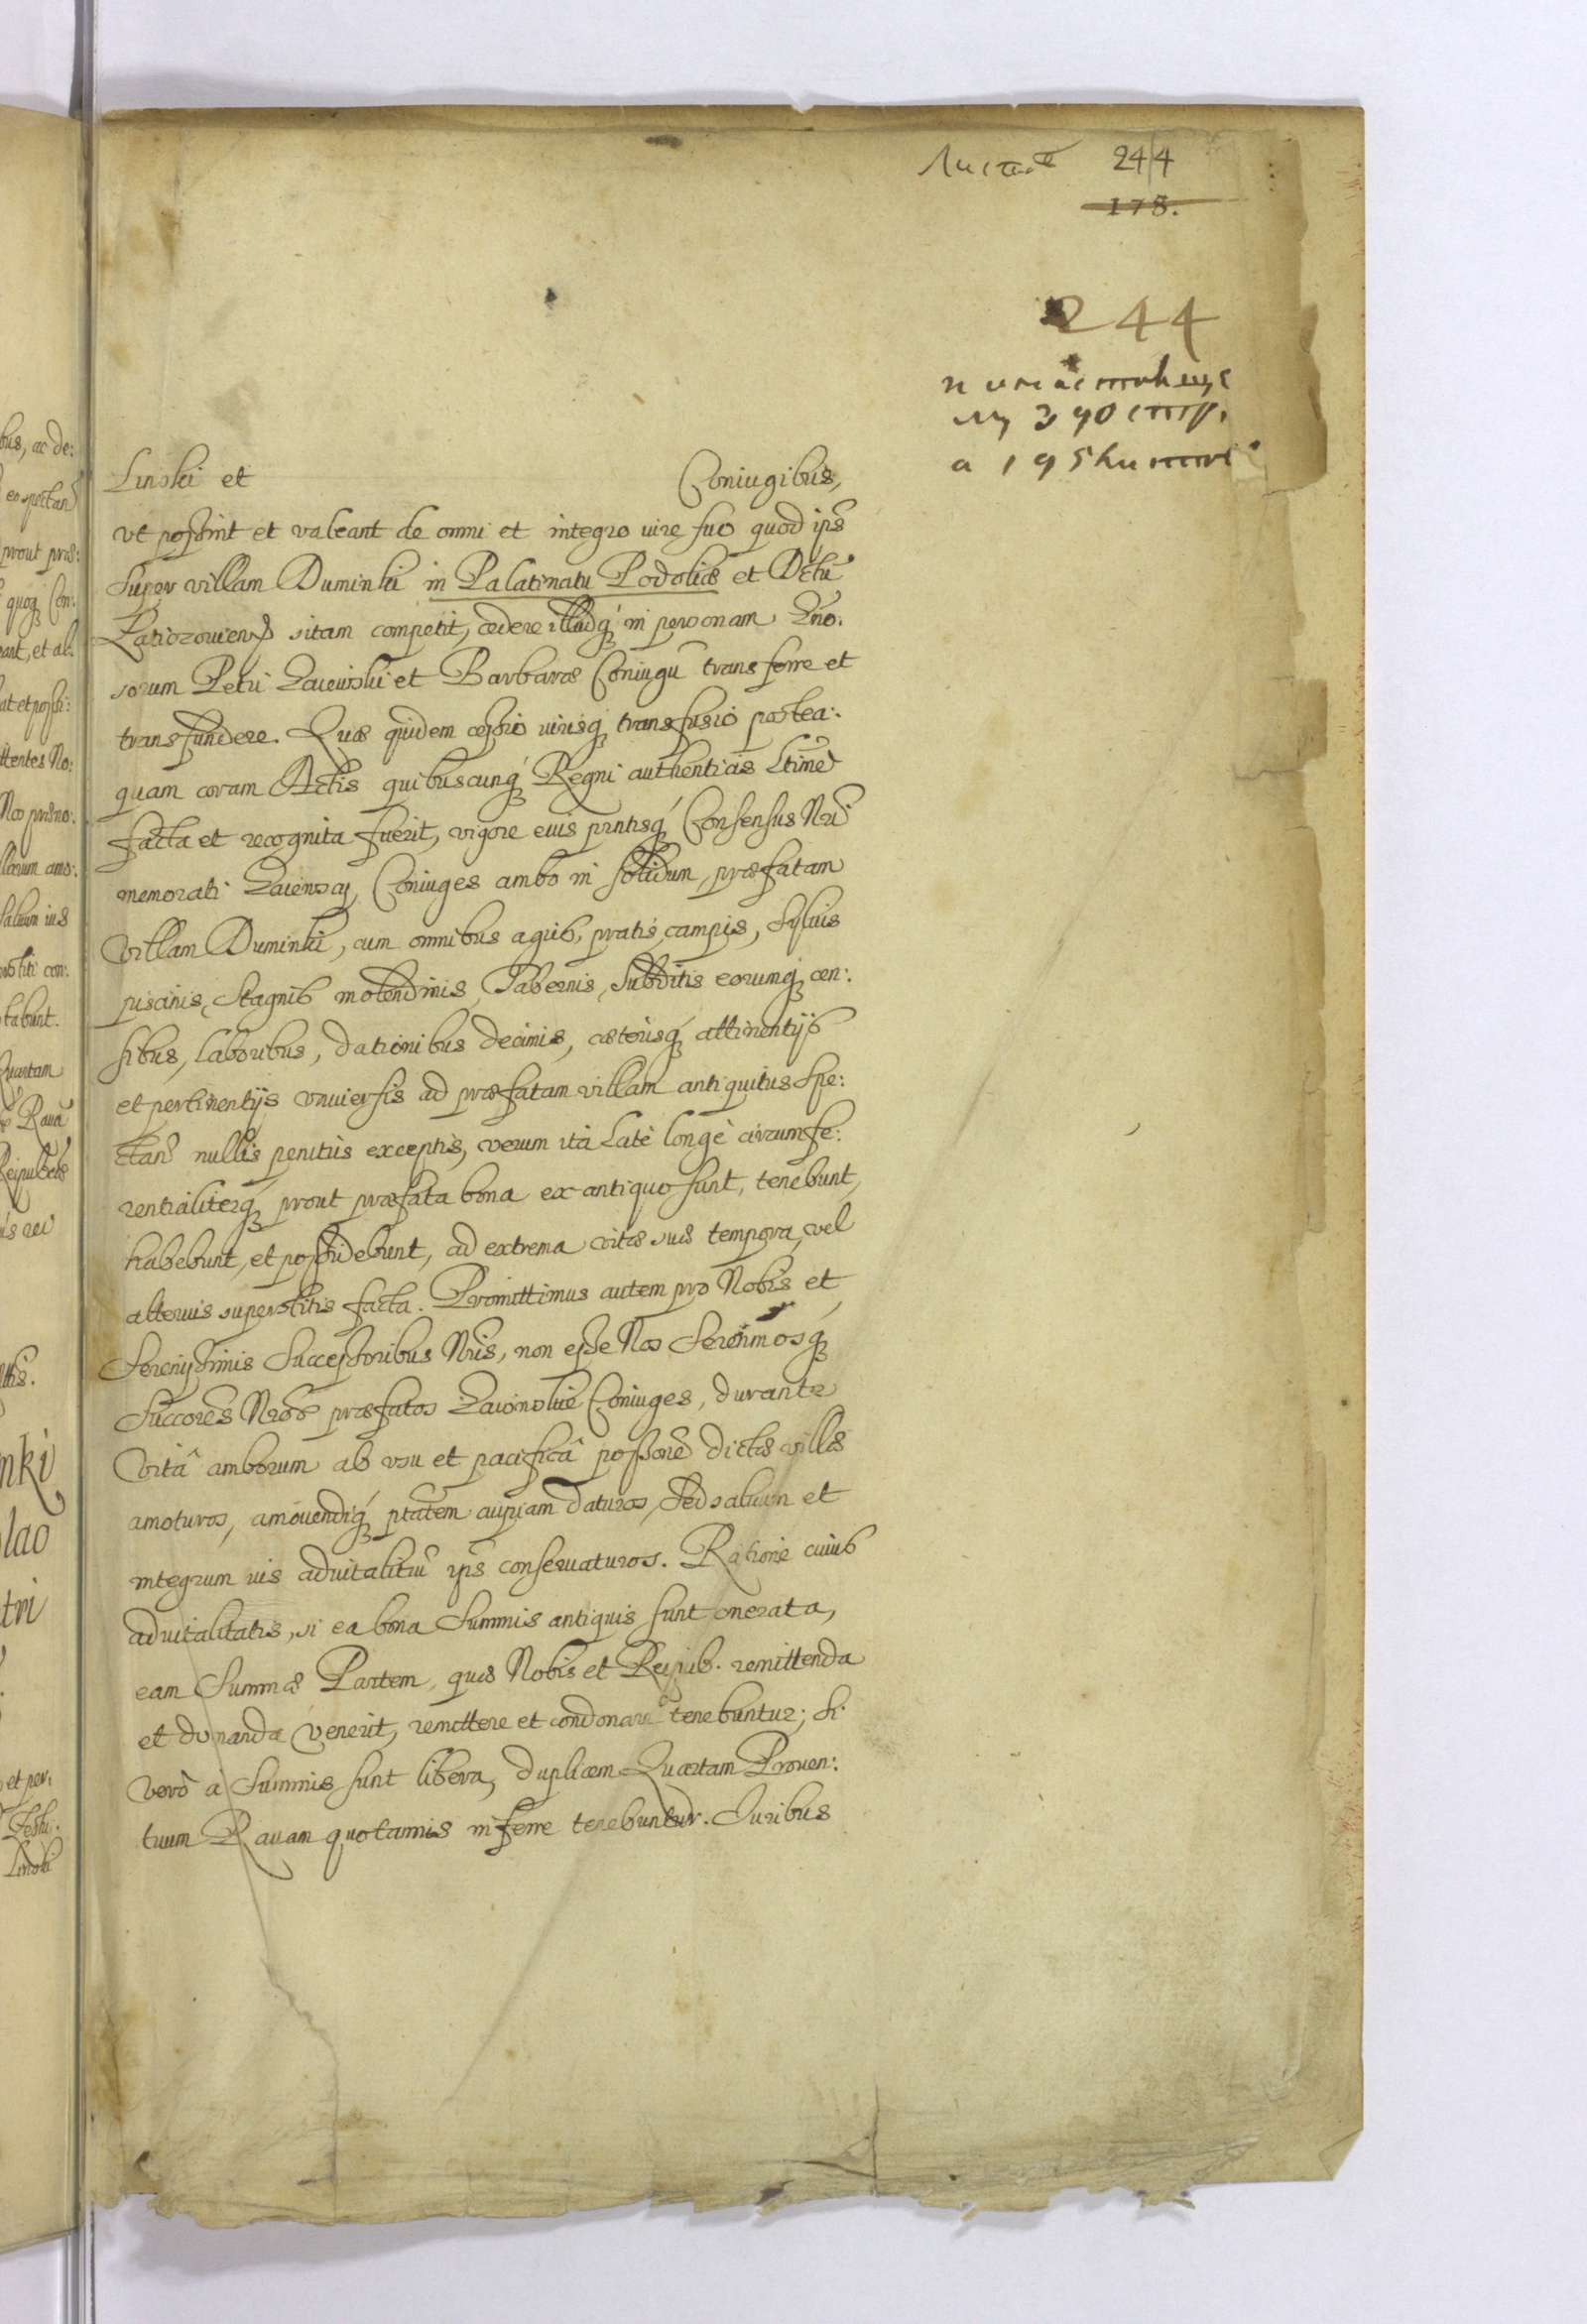 244
178.
244
Linski et Coniugibus,
vt possint et valeant de omni et integro iure suo quod ips
super villam Duminki in Palatinatu Podoliæ et Dctu
Laticzouien sitam competit, cedere illudq; in personam Gño:
sorum Petri Zaiewski et Barbaræ Coniugũ transferre et
transfundere. Quæ quidem cessio iurisq; transfusio postea:
quam coram Actis quibuscunq; Regni authenticis Ltimè
facta et recognita fuerit, vigore eius prntisq; Consensus Nri
memorati Coniuges ambo in solidum, præfatam
villam Duminki, cum omnibus agris, pratis, campis, syluis
piscinis, stagnis molendinis, Tabernis, subditis eorumq; cen:
sibus, laboribus, dationibus decimis, cæterisq; attinentijs
et pertinentijs vniuersis ad præfatam villam antiquitus spe:
ctan nullis penitùs exceptis, verum ità latè longè circumfe:
rentialiterq; prout præfata bona ex antiquo sunt, tenebunt,
habebunt, et possidebunt, ad extrema vitæ suæ tempora, vel
alterius superstitis facta. Promittimus autem pro Nobis et
Serenissimis Successoribus Nris, non esse Nos Serenmosq;
Succores Nros præfatos Coniuges, durante
vitâ amborum ab vsu et pacificâ possone dictæ villæ
amoturos, amouendiq; ptatem cuipiam daturos, sed saluum et
integrum ius aduitalitiũ ips conseruaturos. Ratione cuius
aduitalitatis, si ea bona summis antiquis sunt onerata,
eam summæ Partem, quæ Nobis et Reipub. remittenda
et donanda venerit, remittere et condonare tenebuntur; si
verò à summis sunt libera, duplicem Quartam Prouen:
tuum Rauam quotannis inferre tenebuntur. Iuribus